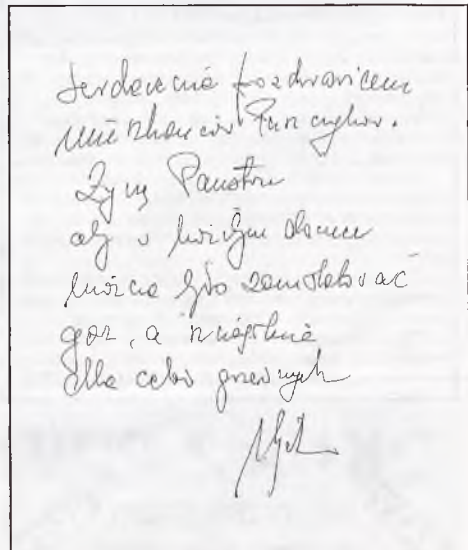 Serdecznie pozdrawiam
mieszkańców
Życzę Państwu
aby w każdym domu
można było zainstalować
gaz, a szczególnie
dla celów grzewczych